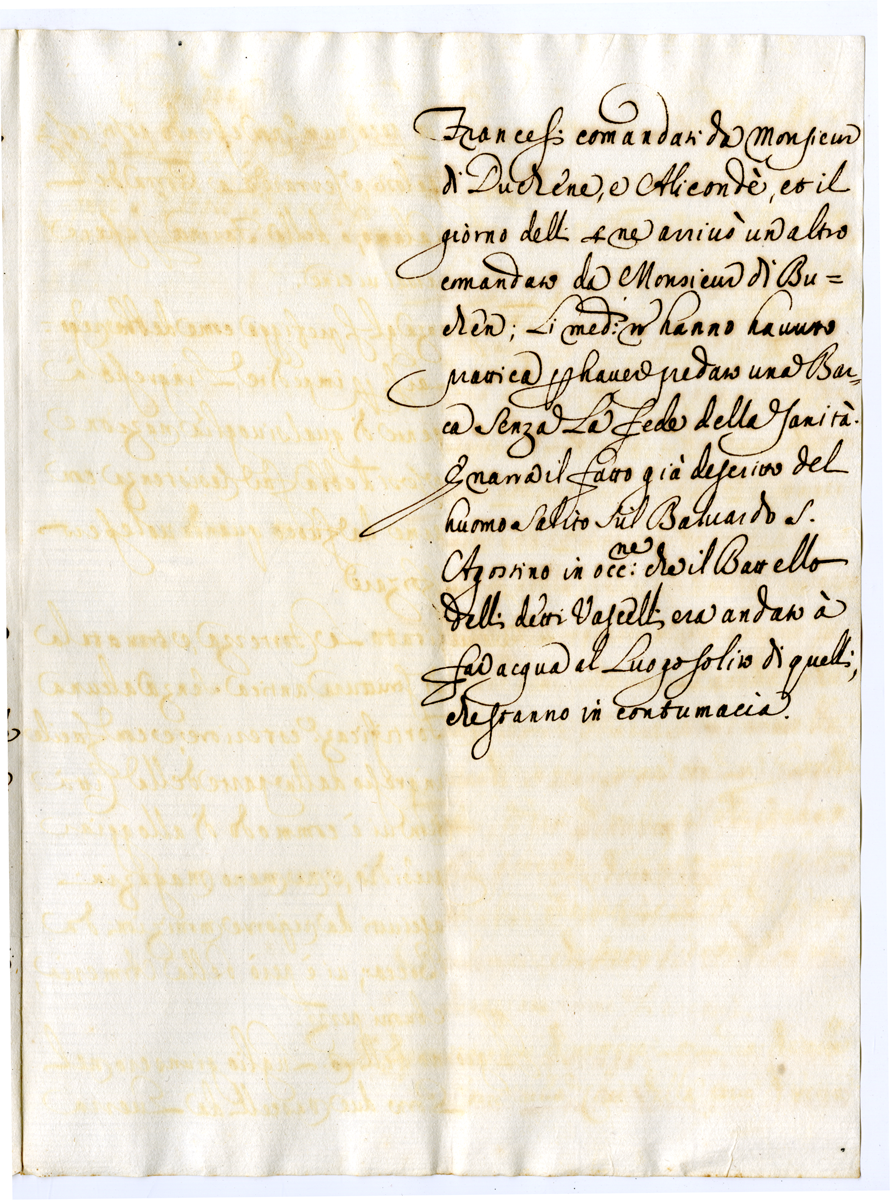 Francesi comandati da Monsieur
di Duchéne, e Alicondè, et il
giorno delli ne arriuò un altro
comandato da Monsieur di Bu=
chèn; Li med: hanno hauuto
prattica p hauer predato una Bar=
ca senza La Fede della Sanità.
E narra il fatto già descritto del
huomo salito sul Baluardo S.
Agostino in occ:ne che il Battello
delli detti Vascelli era andato à
far acqua al Luogo solito di quelli,
che stanno in contumacia.